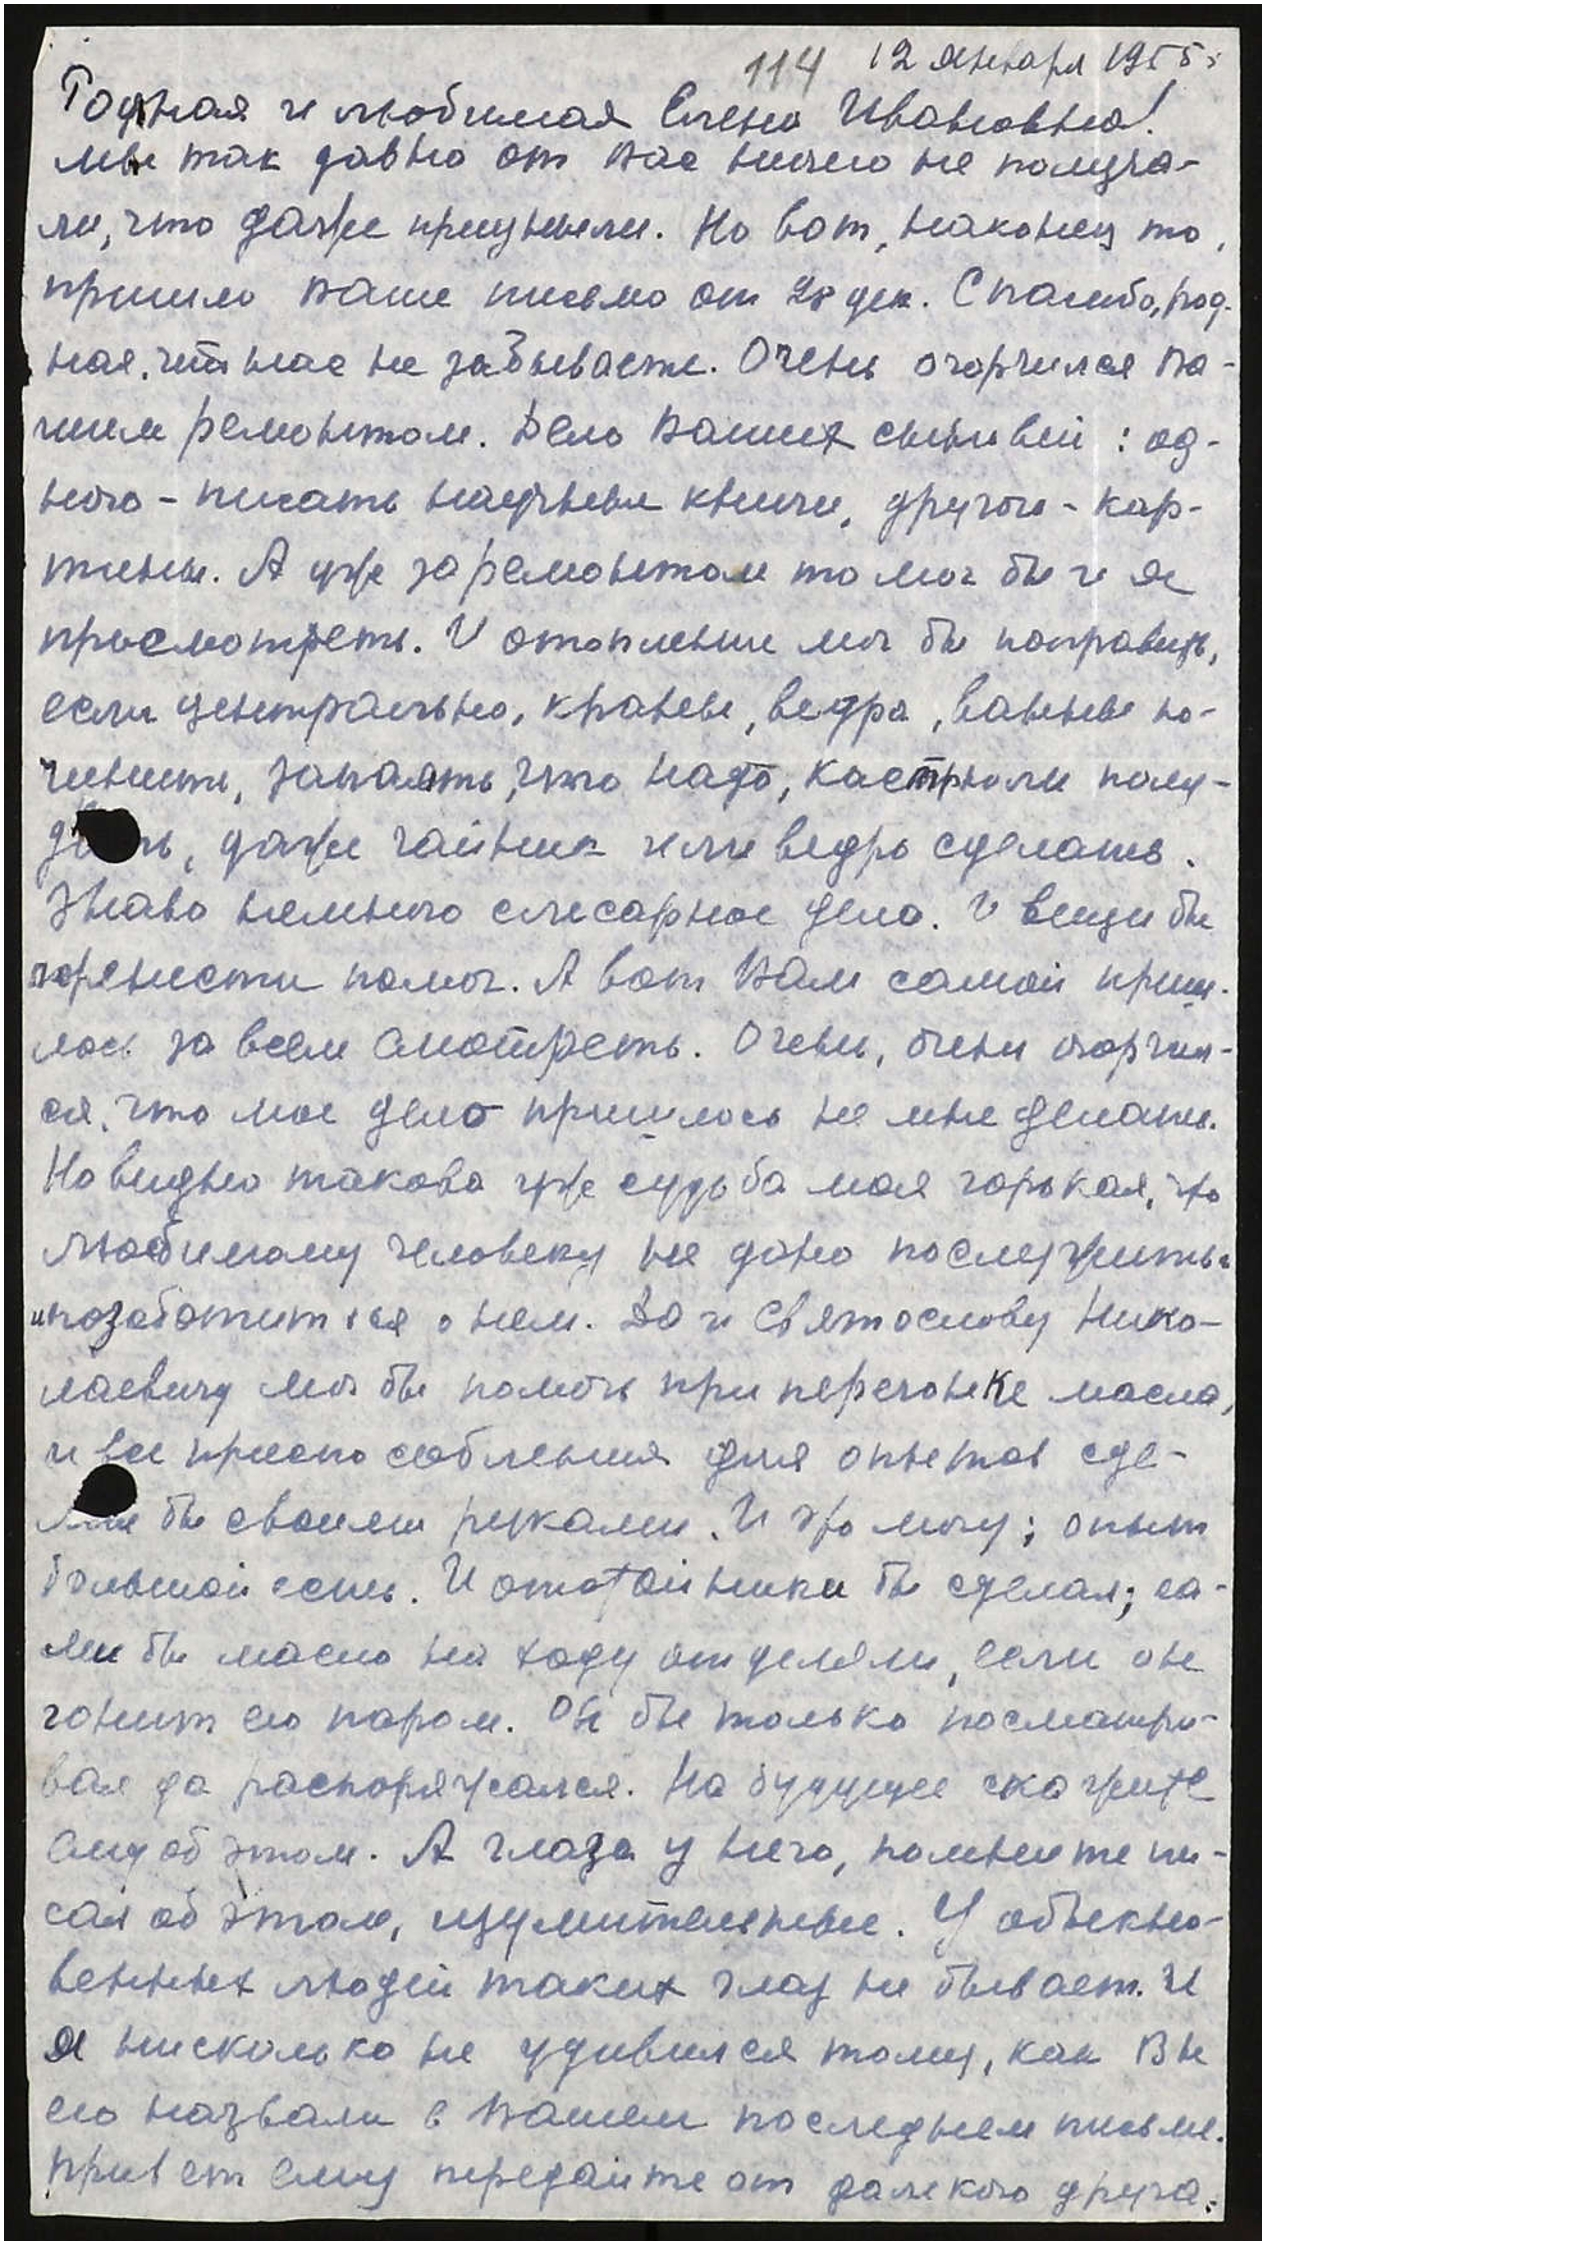 114 12 января 1955г
Родная и любимая Елена Ивановна!
мы так давно от Вас ничего не получа-
ли, что даже приуныли. Но вот, наконец то,
пришло Ваше письмо от 28 дек. Спасибо, род-
ная, что нас не забываете. Очень огорчился Ва-
шим ремонтом. Дело Ваших сыновей: од-
ного – писать научные книги, другой – кар-
тины. А уже за ремонтом то мог бы и я
присмотреть. И отопленье мог бы поправить,
если центрально, краны, ведра, ванны по-
чинить, запаять, что надо, кастрюли полу-
дить, даже чайник или ведро сделать.
Знаю немного слесарное дело. И вещи бы
перенести помог. А вот Вам самой приш-
лось за всем смотреть. Очень, очень огорчил-
ся, что мое дело пришлось не мне делать.
Но видно такова уже судьба моя горькая, что
любимому человеку не дано послужить
и позаботиться о нем. Да и Святославу Нико-
лаевичу мог бы помочь при перегонке масла,
и все приспособления для опытов сде-
лал бы своими руками. И это могу; опыт
большой есть. И отстойники бы сделал; са-
ми бы масло на ходу отделяли, если он
гонит его паром. Он бы только посматри-
вал да распоряжался. На будущее скажите
ему об этом. А глаза у него, помните пи-
сал об этом, изумительные. У обыкно-
венных людей таких глаз не бывает. И
я нисколько не удивился тому, как Вы
его назвали в Вашем последнем письме.
Привет ему передайте от далекого друга.